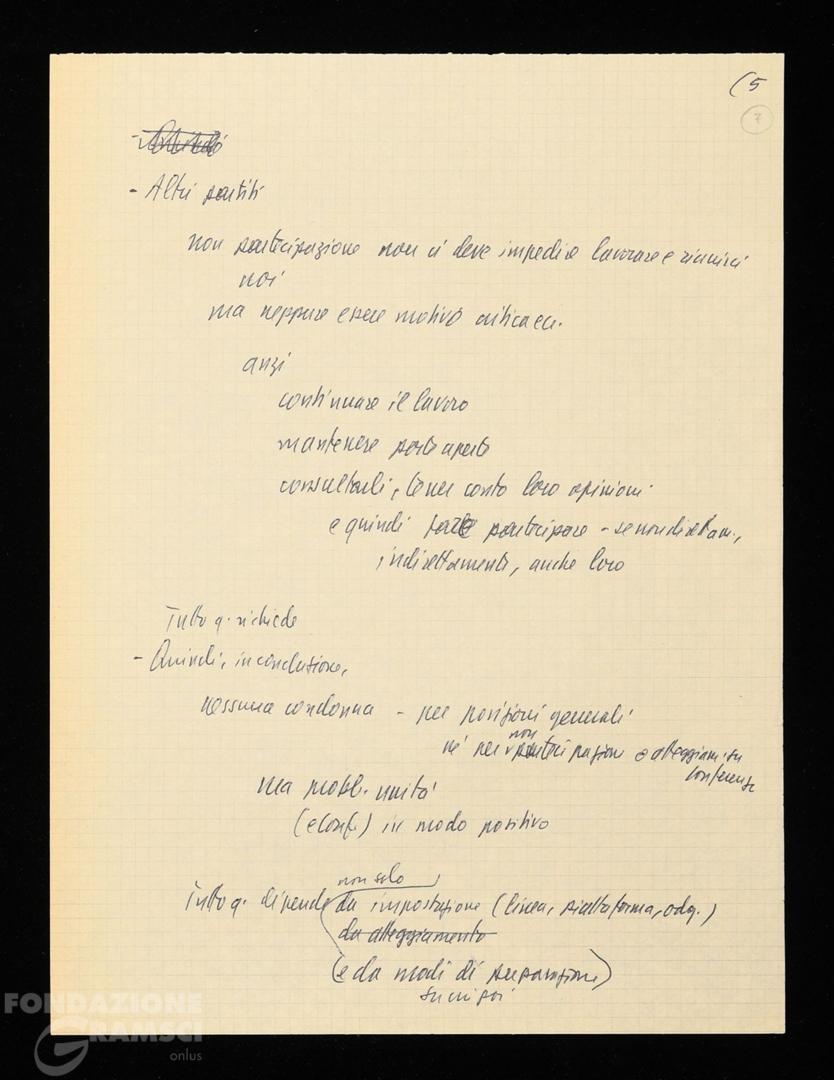 (5
7
- Altri partiti
non partecipazione non ci deve impedire lavorare e riunirci
noi
ma neppure essere motivo critica ecc.
anzi
continuare il lavoro
mantenere porte aperte
consultarli, tener conto loro opinioni
e quindi farle partecipare - se non direttam.,
indirettamente, anche loro
Tutto q. richiede
- Quindi, in conclusione,
nessuna condanna - per posizioni generali
non
né per partecipazione e atteggiam. su
conferenze
ma probl. unità
(e conf.) in modo positivo
non solo
Tutto q. dipende da impostazione (linea, piattaforma, odg.)
da atteggiamento
(e da modi di preparazione)
su cui poi
FONDAZIONE
GRAMSCI
onlus